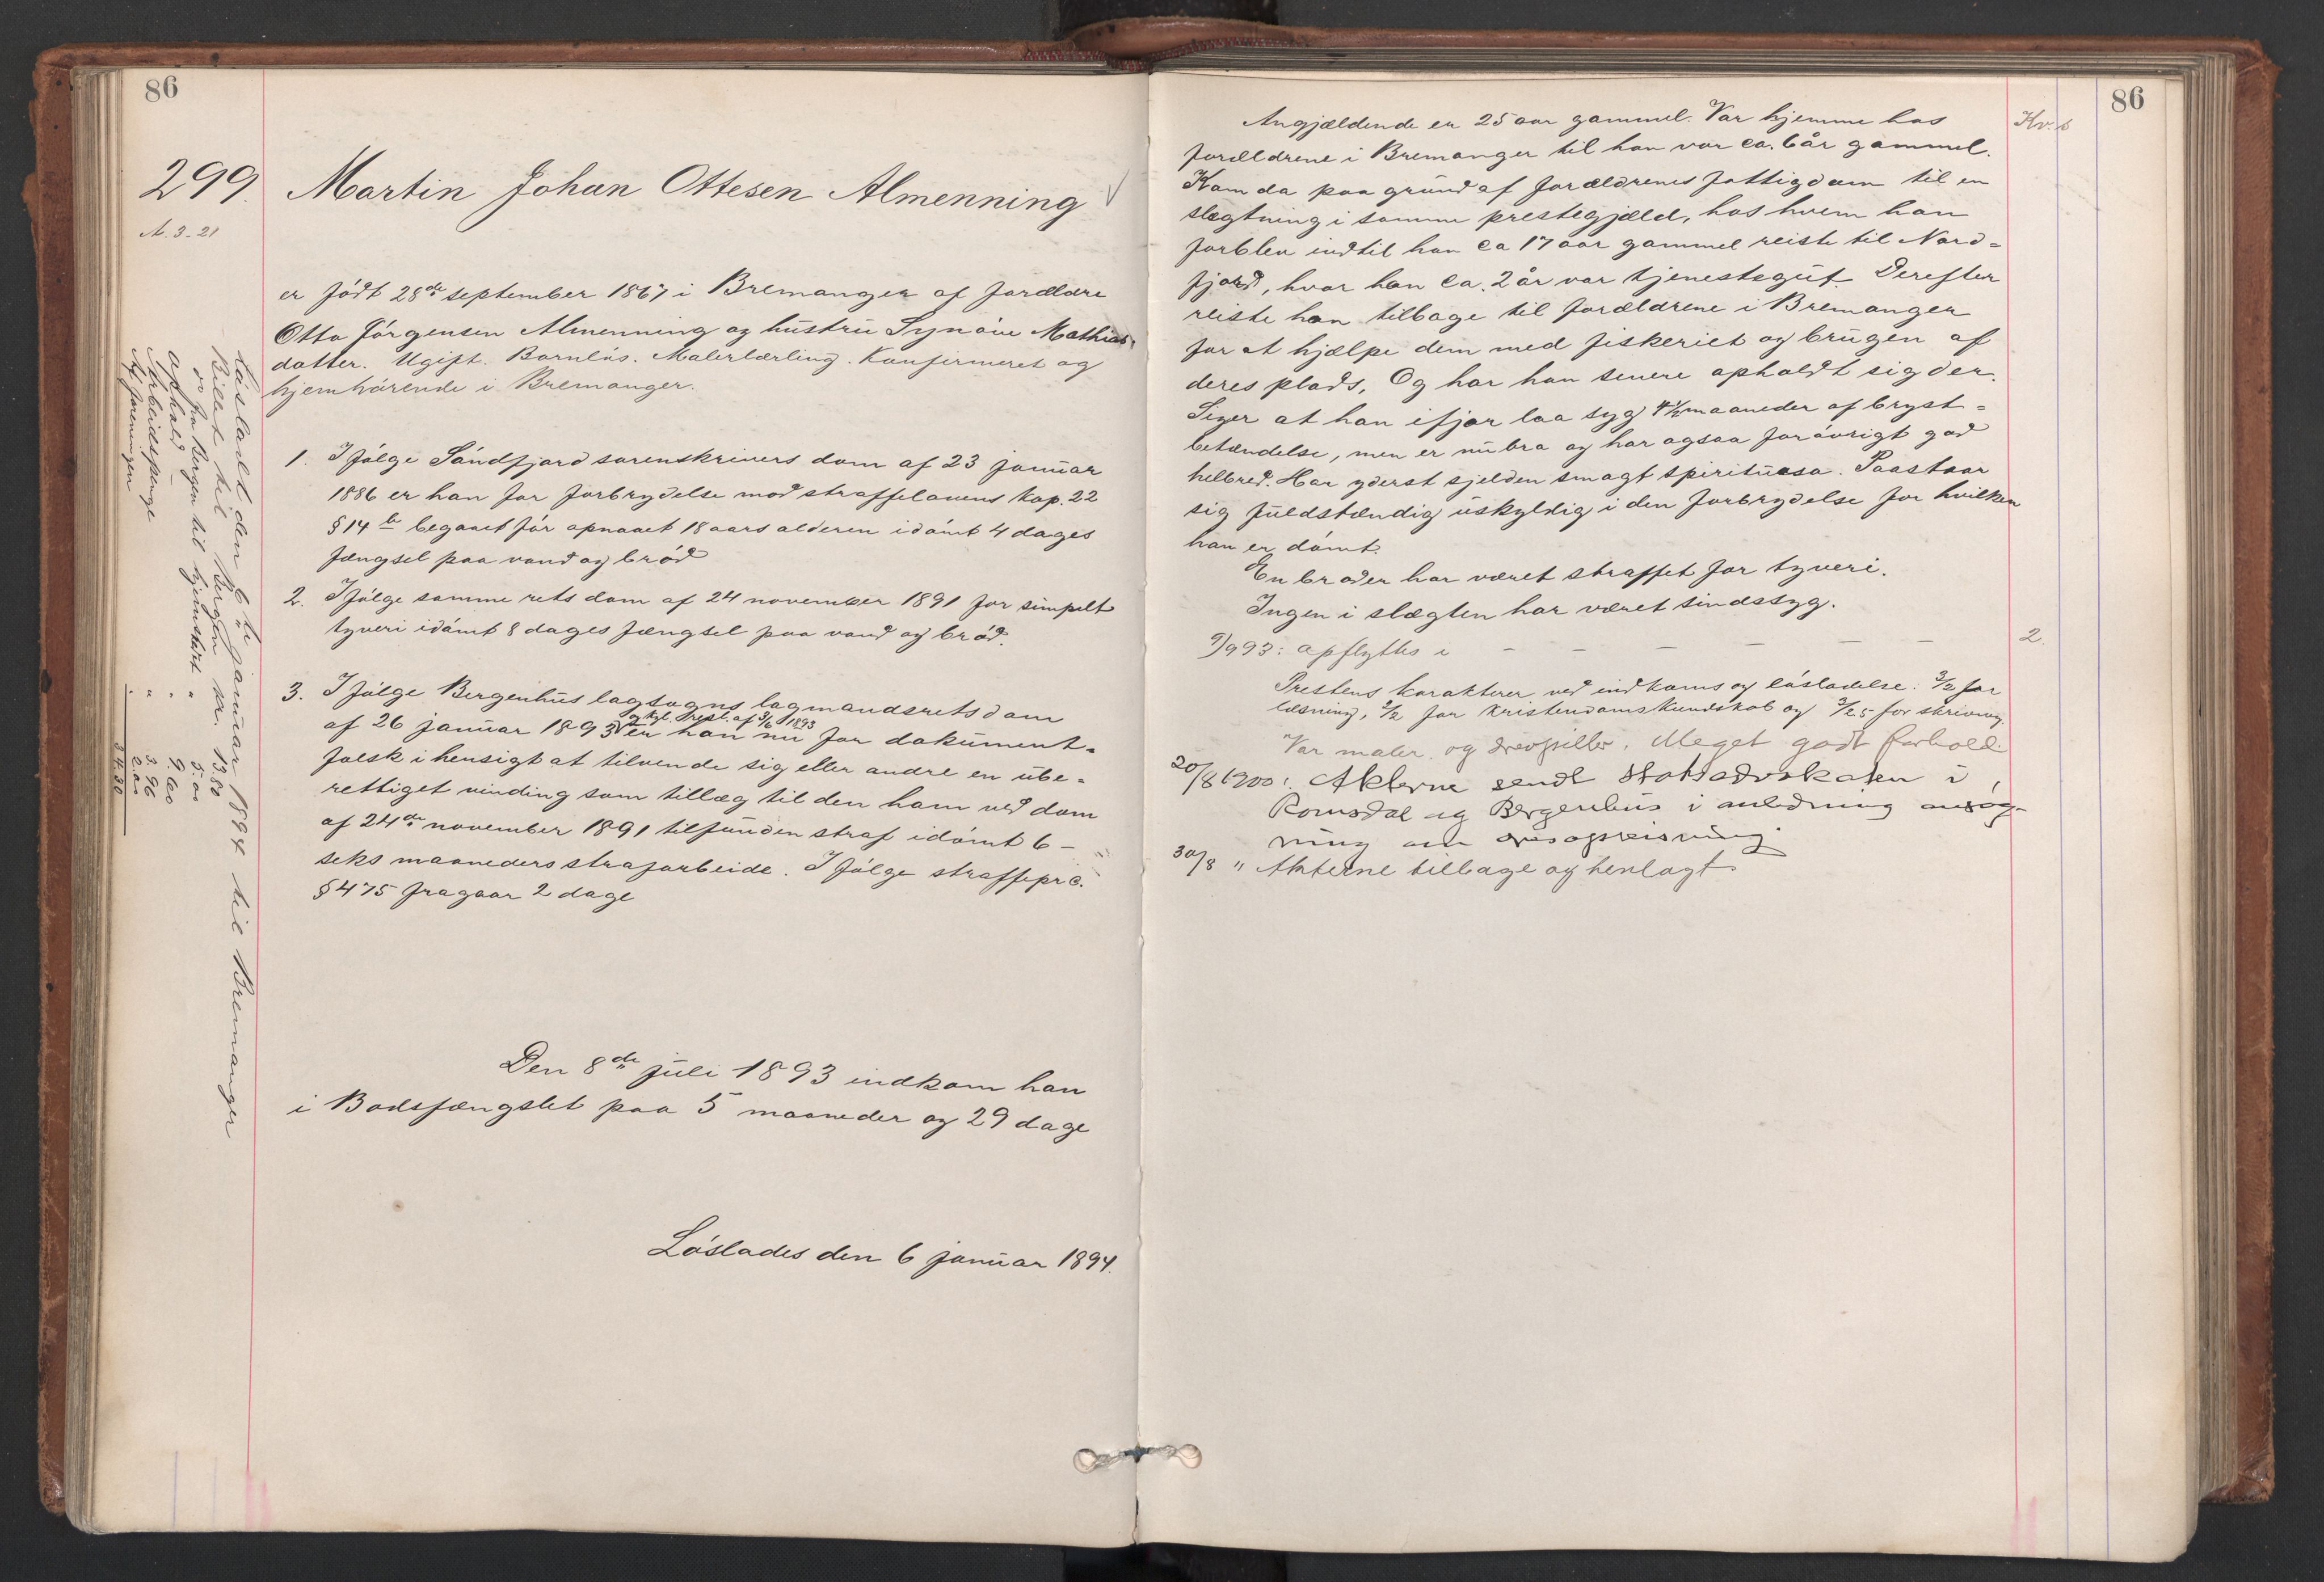 86
299.
Martin Johan Ottesen Almenning
A. 3-21
er født 28de september 1867 i Bremanger af forældre
Otto Jørgensen Almenning og hustru Synøve Mathias-
datter. Ugift. Barnløs. Malerlærling. Konfirmeret og
hjemhørende i Bremanger.
1. Ifølge Søndfjord sorenskrivers dom af 23 januar
1886 er han for forbrydelse mod straffelovens kap. 22
§ 14 begaaet før opnaaet 18 aars alderen idømt 4 dages
fængsel paa vand og brød
2. Ifølge samme rets dom af 24 november 1891 for simpelt
tyveri idømt 8 dages fængsel paa vand og brød.
3. Ifølge Bergenhus lagsogns lagmandsrets dom
og kgl. resl. af 3/6 1893
af 26 januar 1893 er han nu for dokument-
falsk i hensigt at tilvende sig eller andre en ube-
rettiget vinding som tillæg til den ham ved dom
af 24de november 1891 tilfunden straf idømt 6 -
seks maaneders strafarbeide. Ifølge straffeprc.
§ 475 fragaar 2 dage
Den 8de juli 1893 indkom han
i Bodsfængslet paa 5 maaneder og 29 dage
Løslades den 6 januar 1894.
Løsladt den 6te januar 1894 til Bremanger
Billet til Bergen kr. 13.80
" fra Bergen til hjemstedet " 5.00
Ophold " 9.60
Arbeidspenge " 3.96
Af foreningen 2.00
34.30
86
Kv. b
Angjældende er 25 aar gammel. Var hjemme hos
forældrene i Bremanger til han var ca. 6 år gammel.
Kom da paa grund af forældrenes fattigdom til en
slægtning i samme prestegjæld, hos hvem han
forblev indtil han ca 17 aar gammel reiste til Nord-
fjord, hvor han ca. 2 år var tjenestegut. Derefter
reiste han tilbage til forældrene i Bremanger
for at hjælpe dem med fiskeriet og brugen af
deres plads, Og har han senere opholdt sig der.
Siger at han ifjor laa syg 4 1/2 maaneder af bryst-
betændelse, men er nu bra og har ogsaa forøvrigt god
helbred. Har yderst sjelden smagt spirituosa. Paastaar
sig fuldstændig uskyldig i den forbrydelse for hvilken
han er dømt.
En broder har været straffet for tyveri.
Ingen i slægten har været sindssyg.
9/9 93: opflyttes i - - - - - 2.
Prestens karakterer ved indkoms og løsladelse: 3/2 for
læsning, 2/2 for kristendomskundskab og 3/2.5 for skrivning.
Var maler og Meget godt forhold.
20/8 1900: Akterne sendt statsadvokaten i
Romsdal og Bergenhus i anledning ansøg-
ning om æresopreisning.
30/8 " Akterne tilbage og henlagt.